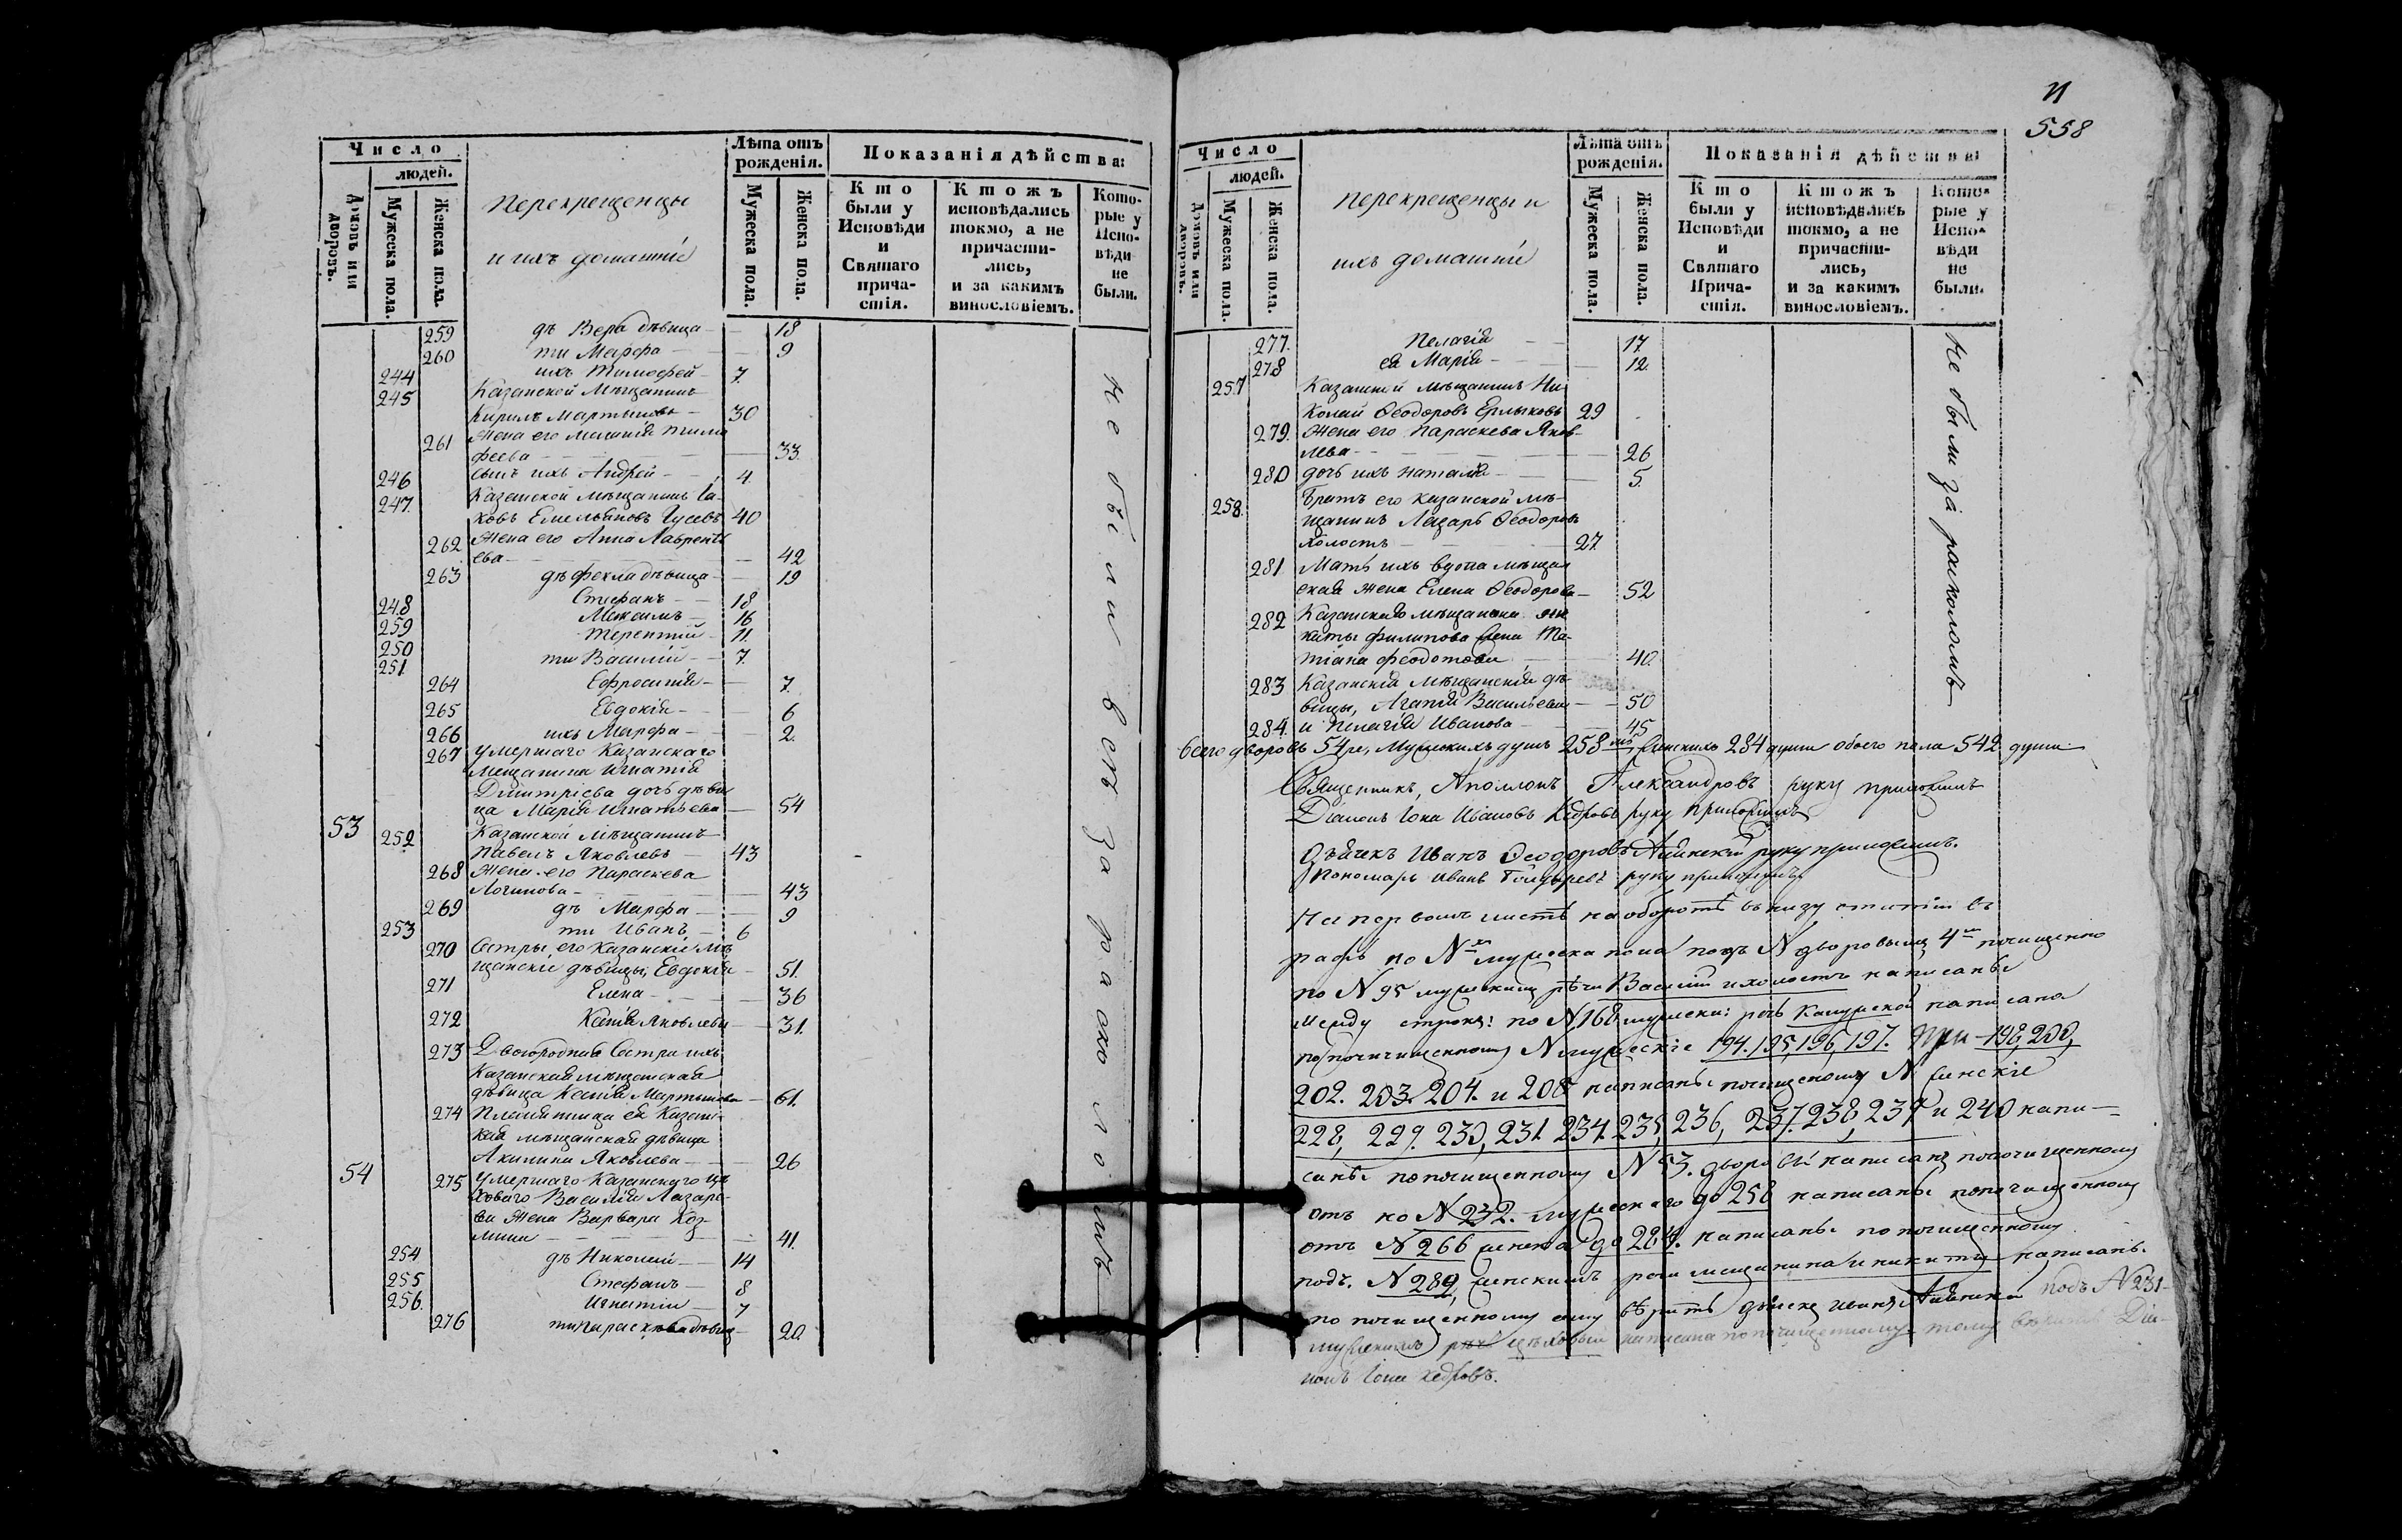 Число
людей.
Домовъ или дворовъ.
Мужеска пола.
Женска пола.
Перекрещенцы
и ихъ домашніе
Лѣта отъ рожденія.
Мужеска пола.
Женска пола.
Показанія дѣйства:
Кто были у Исповѣди и Святаго причастія.
Ктожъ исповѣдались токмо, а не причастились, и за какимъ винословіемъ.
Которые у Исповѣди не были.
259 дѣ Вера дѣвица — 18
260 ти Марфа — 9
244 ихъ Тимофей — 7.
245 Казанской Мѣщанинъ
Кирилъ Мартыновъ — 30
261 Жена его Меланія Тимо
феева — 33.
246 Сынъ ихъ Андрей — 4.
247. Казанской мѣщанинъ Іа-
ковъ Емельяновъ Гусевъ 40
262 Жена его Анна Лаврентъ
ева — 42
263 дѣ Фекла дѣвица — 19
248 Стефанъ — 18
259 Максимъ — 16
250 Терентій — 11.
251 ти Василій — 7.
264 Ефросинія — 7.
265 Евдокія — 6
266 ихъ Марфа — 2.
267 Умершаго Казанскаго
Мещанина Игнатія
Димитріева дочь дѣви
ца Марія Игнатьева — 54
53 252 Казанской Мѣщанинъ
Павелъ Яковлевъ — 43
268 Жена его Параскева
Логинова — 43
269 дѣ Марфа — 9
253 ти Иванъ — 6
270 Сестры его Казанскіе мѣ
щанскіе дѣвицы, Евдокія — 51.
271 Елена — 36
272 Ксенія Яковлевы — 31.
273 Двоюродная Сестра ихъ
Казанская мѣщанская
дѣвица Ксенія Мартынова — 61.
274 Племянница ея Казан-
кая мѣщанская дѣвица
Акилина Яковлева — 26
54 275 Умершаго Казанскаго цѣ
ховаго Василія Лазаре-
ва Жена Варвара Коз-
мина — 41.
254 дѣ Николай — 14
255 Стефанъ — 8
256. Игнатій — 7
276 ти Параскева дѣвиц — 20
не были всѣ за расколомъ
11
558
Число
людей.
Домовъ или дворовъ.
Мужеска пола.
Женска пола.
перекрещенцы и
ихъ домашніе
Лѣта отъ рожденія.
Мужеска пола.
Женска пола.
Показанія дѣйства:
Кто были у Исповѣди и Святаго Причастія.
Ктожъ исповѣдались токмо, а не причастились, и за какимъ винословіемъ.
Которые у Исповѣди не были.
277. Пелагія — 17
278 ея Марія — 12.
257 Казанской мѣщанинъ Ни
колай Ѳеодоровъ Ерлыковъ 29
279. Жена его Параскева Яков-
лева — 26
280 дочь ихъ Наталія — 5.
258. Братъ его Казанской мѣ-
щанинъ Лазарь Ѳеодоровъ
холостъ — 27.
281 Мать ихъ вдова мѣщан
ская жена Елена Ѳеодорова — 52
282 Казанскаго мѣщанина
киты Филипова жена Та-
тіана Феодотова — 40.
283 Казанскія Мѣщанскія дѣ-
вицы, Агапія Васильева — 50
284. и Пелагія Иванова — 45
не были за расколомъ
Всего дворовъ 54ре, Мужскихъ душъ 258мъ, Женскихъ 284 души обоего пола 542 души
Священникъ, Аполлонъ Александровъ руку приложилъ
Діаконъ Іона Ивановъ Кедровъ руку приложилъ
Дьячекъ Иванъ Ѳеодоровъ руку приложилъ.
Пономарь Иванъ руку приложилъ
На первомъ листѣ на оборотѣ въ низу въ
графѣ по № мужеска пола подъ № дворовымъ 4м почищенно
по № 95 мужескимъ рѣчи Василій и холостъ написаны
между строкъ: по № 168 мужеск: рѣчь написана
по почищенному № мужескіе 194. 195, 196, 197. При 198, 200,
202. 203 204. и 208 написаны почищеному № женскіе
228, 229. 230, 231. 234. 235, 236, 237. 238, 239 и 240 напи—
саны по почищенному № 53. дворовый написанъ по почищенному
отъ № 232. мужескаго до 258 написаны по почищенному
отъ № 266 женска до 284. написаны по почищенному
подъ. № 282, женскимъ рѣчи мещанина и никиты написаны.
по почищенному ему вѣрить дьячекъ Иванъ подъ № 231-
мужскимъ рѣчь цѣховый написана по почищенному тому вѣрить Діа-
конъ Іона Кедровъ.